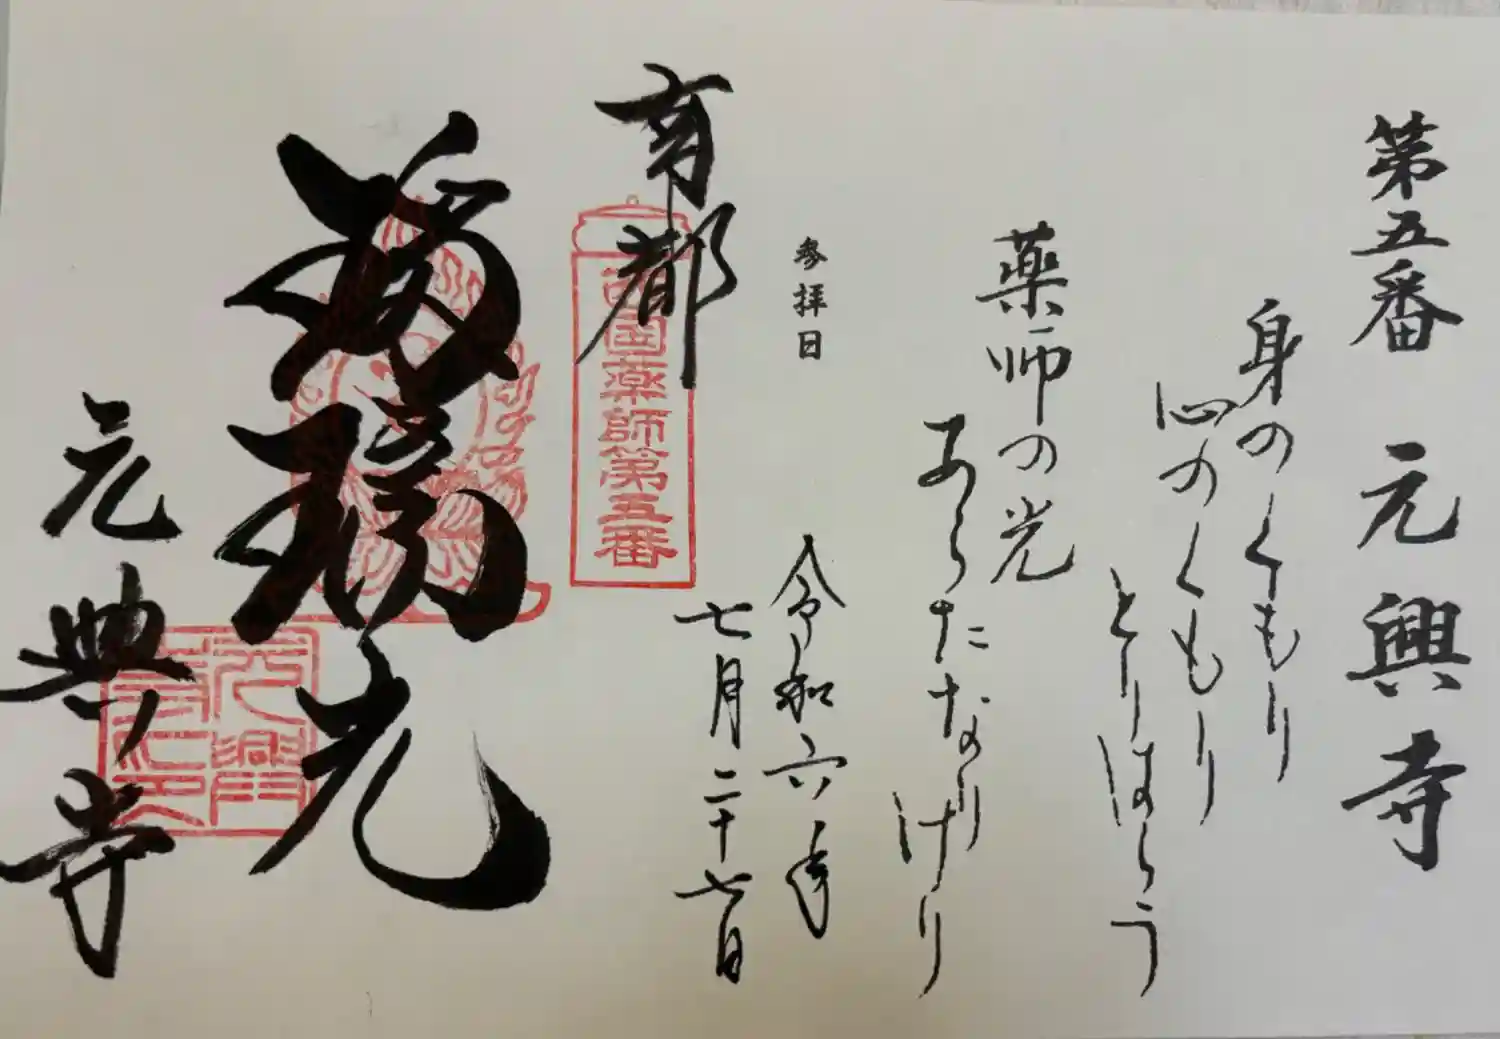 第五番 元興寺
身のくもり
心のくもり
とりはらう
薬師の光
あらたなり
けり
参拝日
令和六年
七月二十七日
南都
西国薬師第五番
瑠璃光
元興寺
元興寺